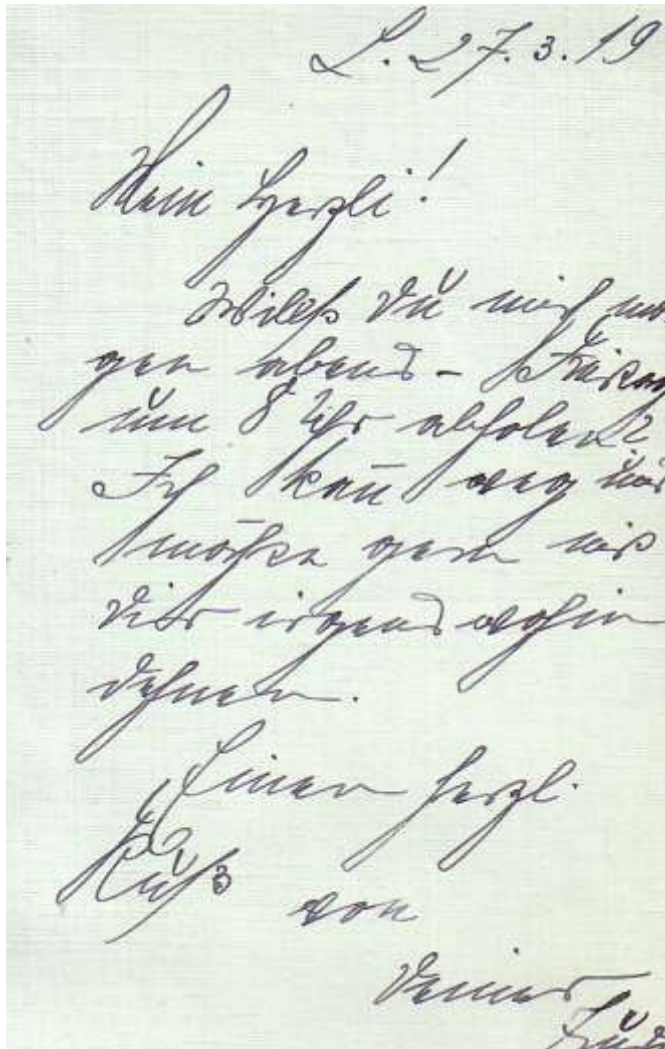 L. 27.3.19
Mein Herzli!
Willst Du mich mor
gen abend – Freitag
um 8 Uhr abholen?
Ich kann weg und
möchte gern mit
Dir irgendwohin
Einen herzl.
Kuß
von
Deiner